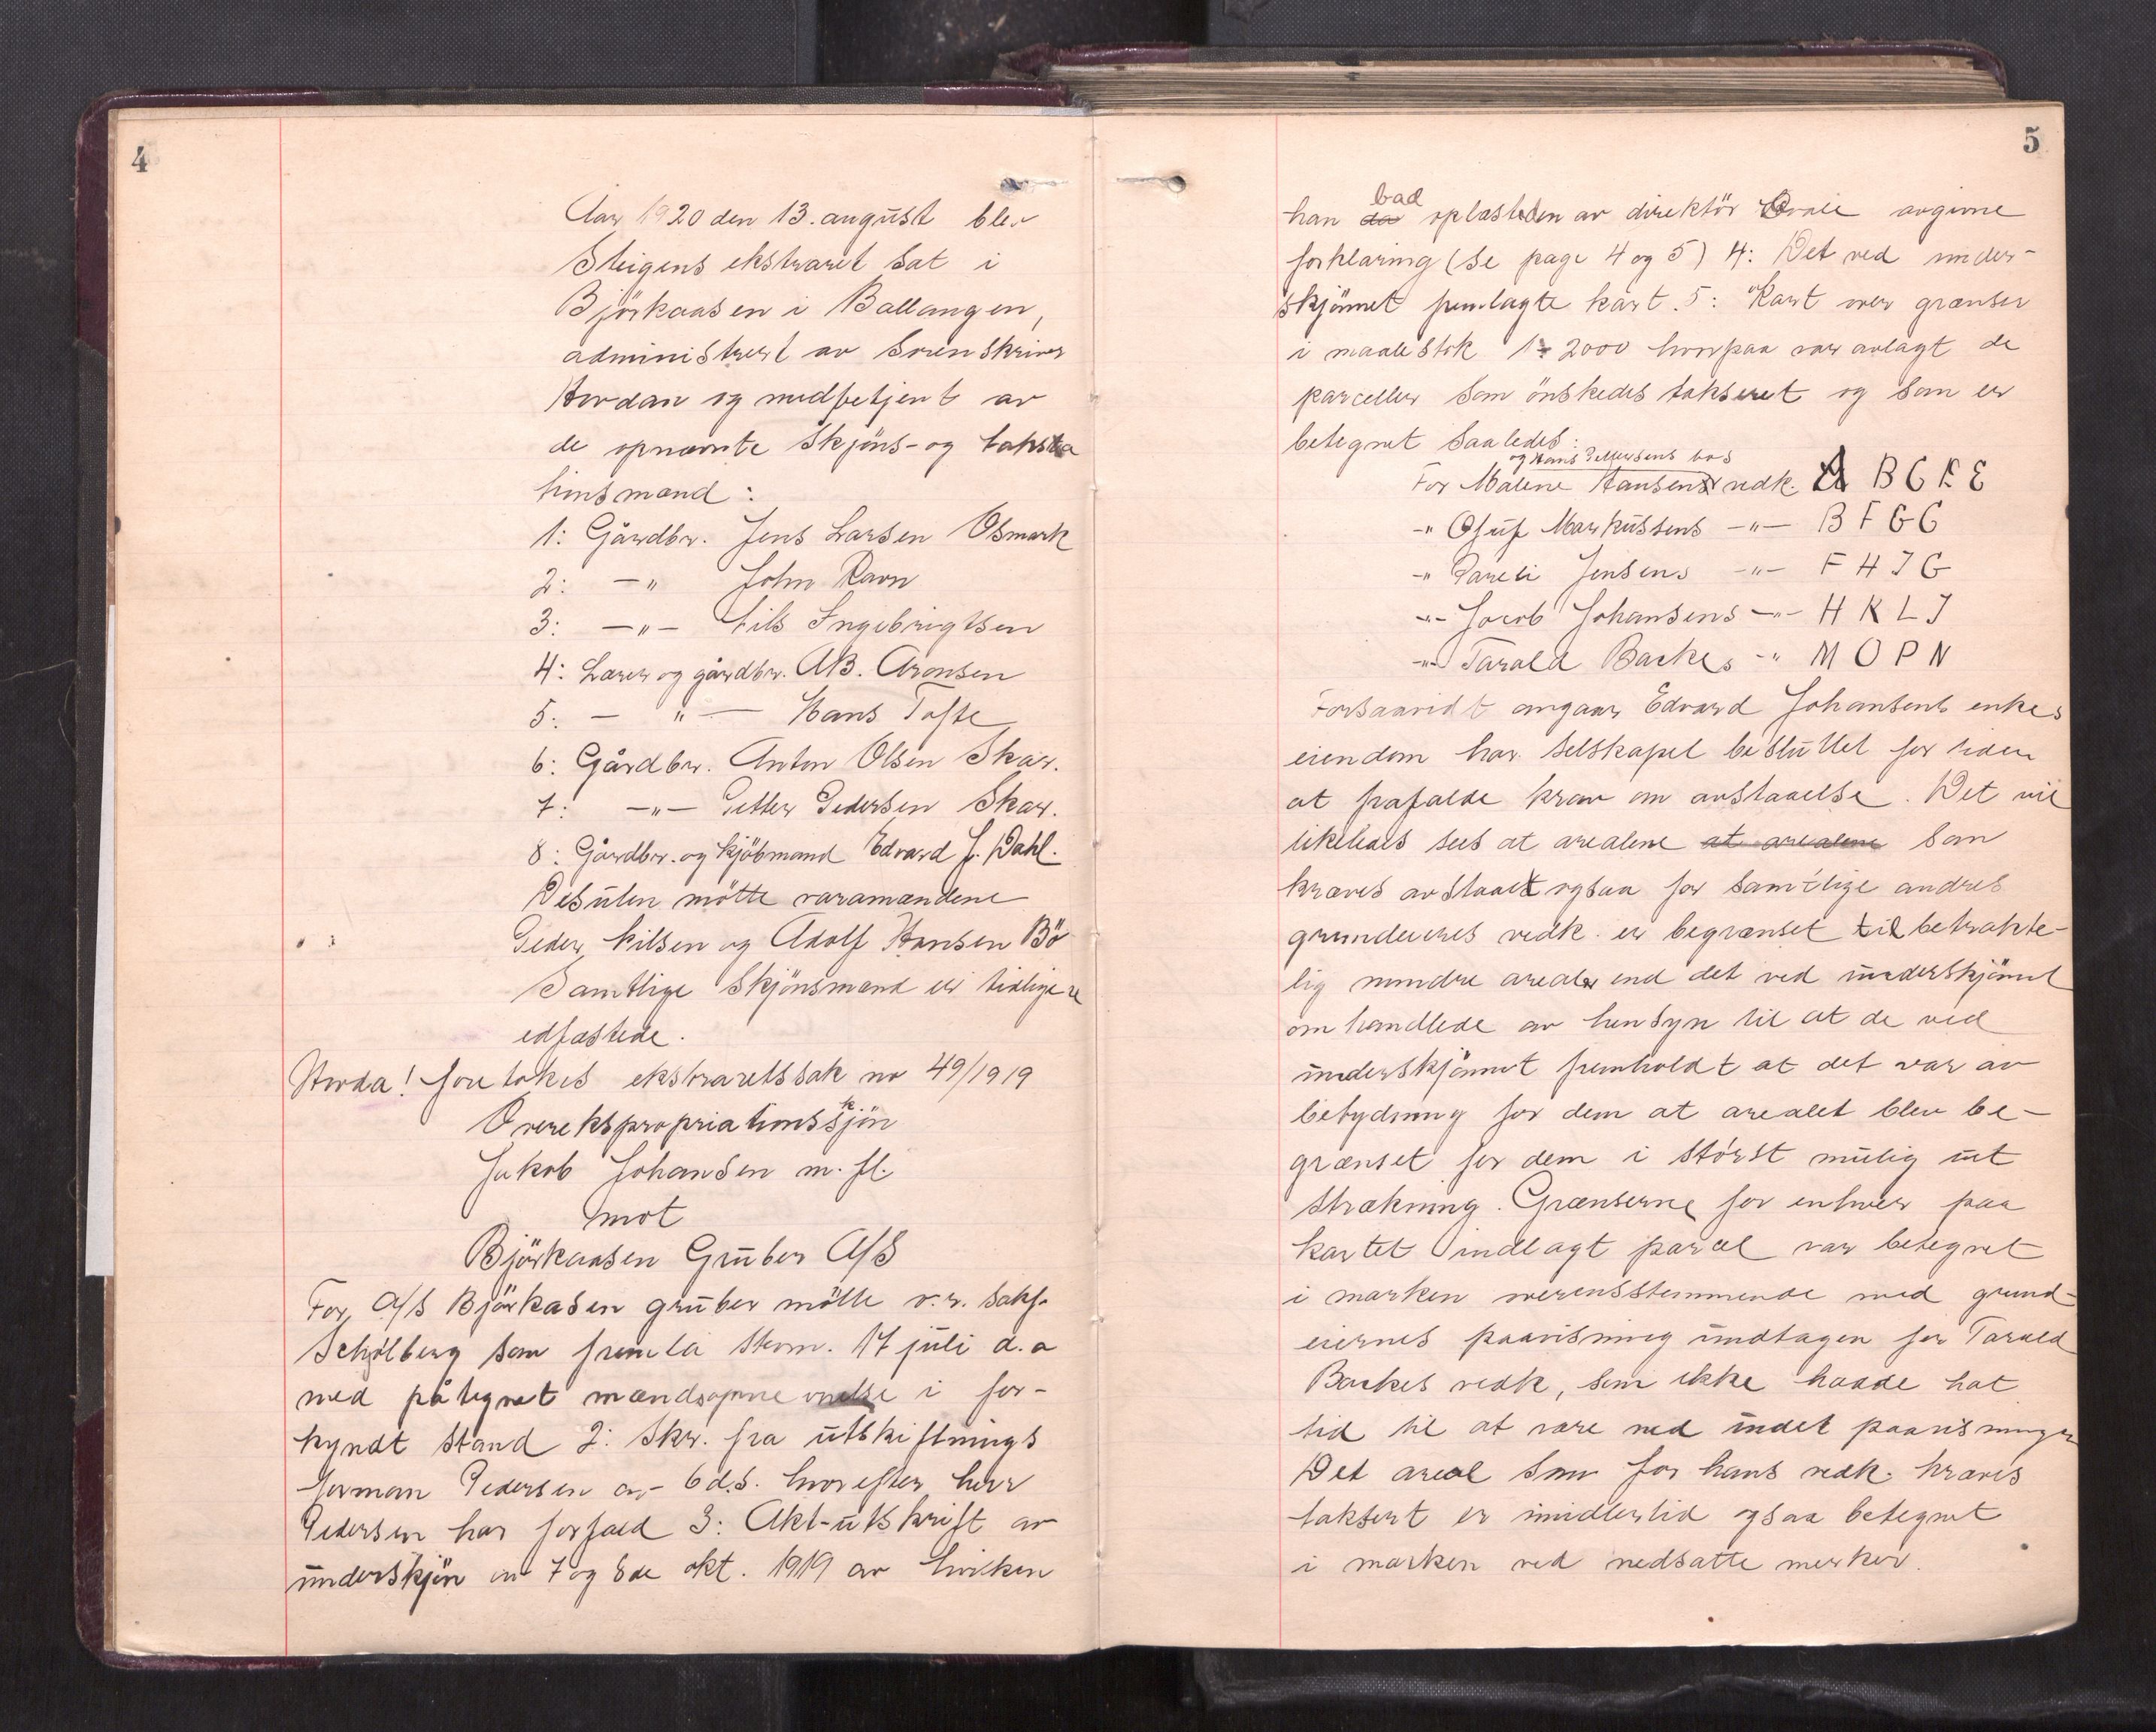 4
Aar 1920 den 13. august blev
Steigens ekstraret sat i
Björkaasen i Ballangen,
administreret av Sorenskriver
Hordan og medbetjent av
de opnævnte skjöns- og takst
mænd:
1: Gårdbr. Jens Larsen Osmark
2: -"- John Ravn
3: -"- Nils Ingebrigtsen
4: Lærer og gårdbr. AB. Aronsen
5: - " - Hans Tofte
6: Gårdbr. Anton Olsen Skar.
7: -"- Petter Pedersen Skar.
8: Gårdbr. og kjöbmand Edvard J. Dahl.
Desuten mötte varamændene
Peder Nilsen og Adolf Hansen Bö
Samtlige skjönsmænd er tidligere
edfæstede.
Hvorda! foretokes ekstraretssak no 49/1919
Overekspropriationsskjön
Jakob Johansen m. fl.
mot
Björkaasen Gruber A/S
For A/S Björkaasen gruber mötte o.r. sakf.
Schjölberg som fremla stevn. 17 juli d.a
med påtegnet mandsopnævnelse i for-
kyndt stand 2: Skr. fra utskiftnings
forman Pedersen av 6 d.s. hvorefter herr
Pedersen har forfald 3: Akt-utskrift av
underskjön av 7 og 8de okt. 1919 av hvilken
5
han da bad oplæst den av direktör Qvale avgivne
forklaring (se page 4 og 5) 4: Det ved under-
skjönnet fremlagte kart. 5: Kart over grænser
i maalestok 1:2000 hvorpaa var avlagt de
parceller som önskedes takseret og som er
betegnet saaledes:
og Hans Pettersens bos
For Malene Hansens vedk. A B C K E
-" Oluf Markussens -"- B F G C
-" Pareli Jensens -"- F H J G
-"- Jacob Johansens -"- H K L J
-"- Tarald Backes -" M O P N
Forsaavidt angaar Edvard Johansens enkes
eiendom har selskapet besluttet for tiden
at frafalde krav om avstaaelse. Det vil
likeledes sees at arealene at arealene som
kræves avstaat ogsaa for samtlige andres
grundeieres vedk. er begrænset til betrakte-
lig mindre arealer end det ved underskjönnet
omhandlede av hensyn til at de ved
underskjönnet fremholdt at det var av
betydning for dem at arealet blev be-
grænset for dem i störst mulig ut
strækning. Grænserne for enhver paa
kartet indlagt parcel var betegnet
i marken overensstemmende med grund-
eiernes paavisning undtagen for Tarald
Backes vedk, som ikke hadde hat
tid til at være med under paavisningen
Det areal som for hans vedk. kræves
taksert er imidlertid ogsaa betegnet
i marken ved nedsatte merker.